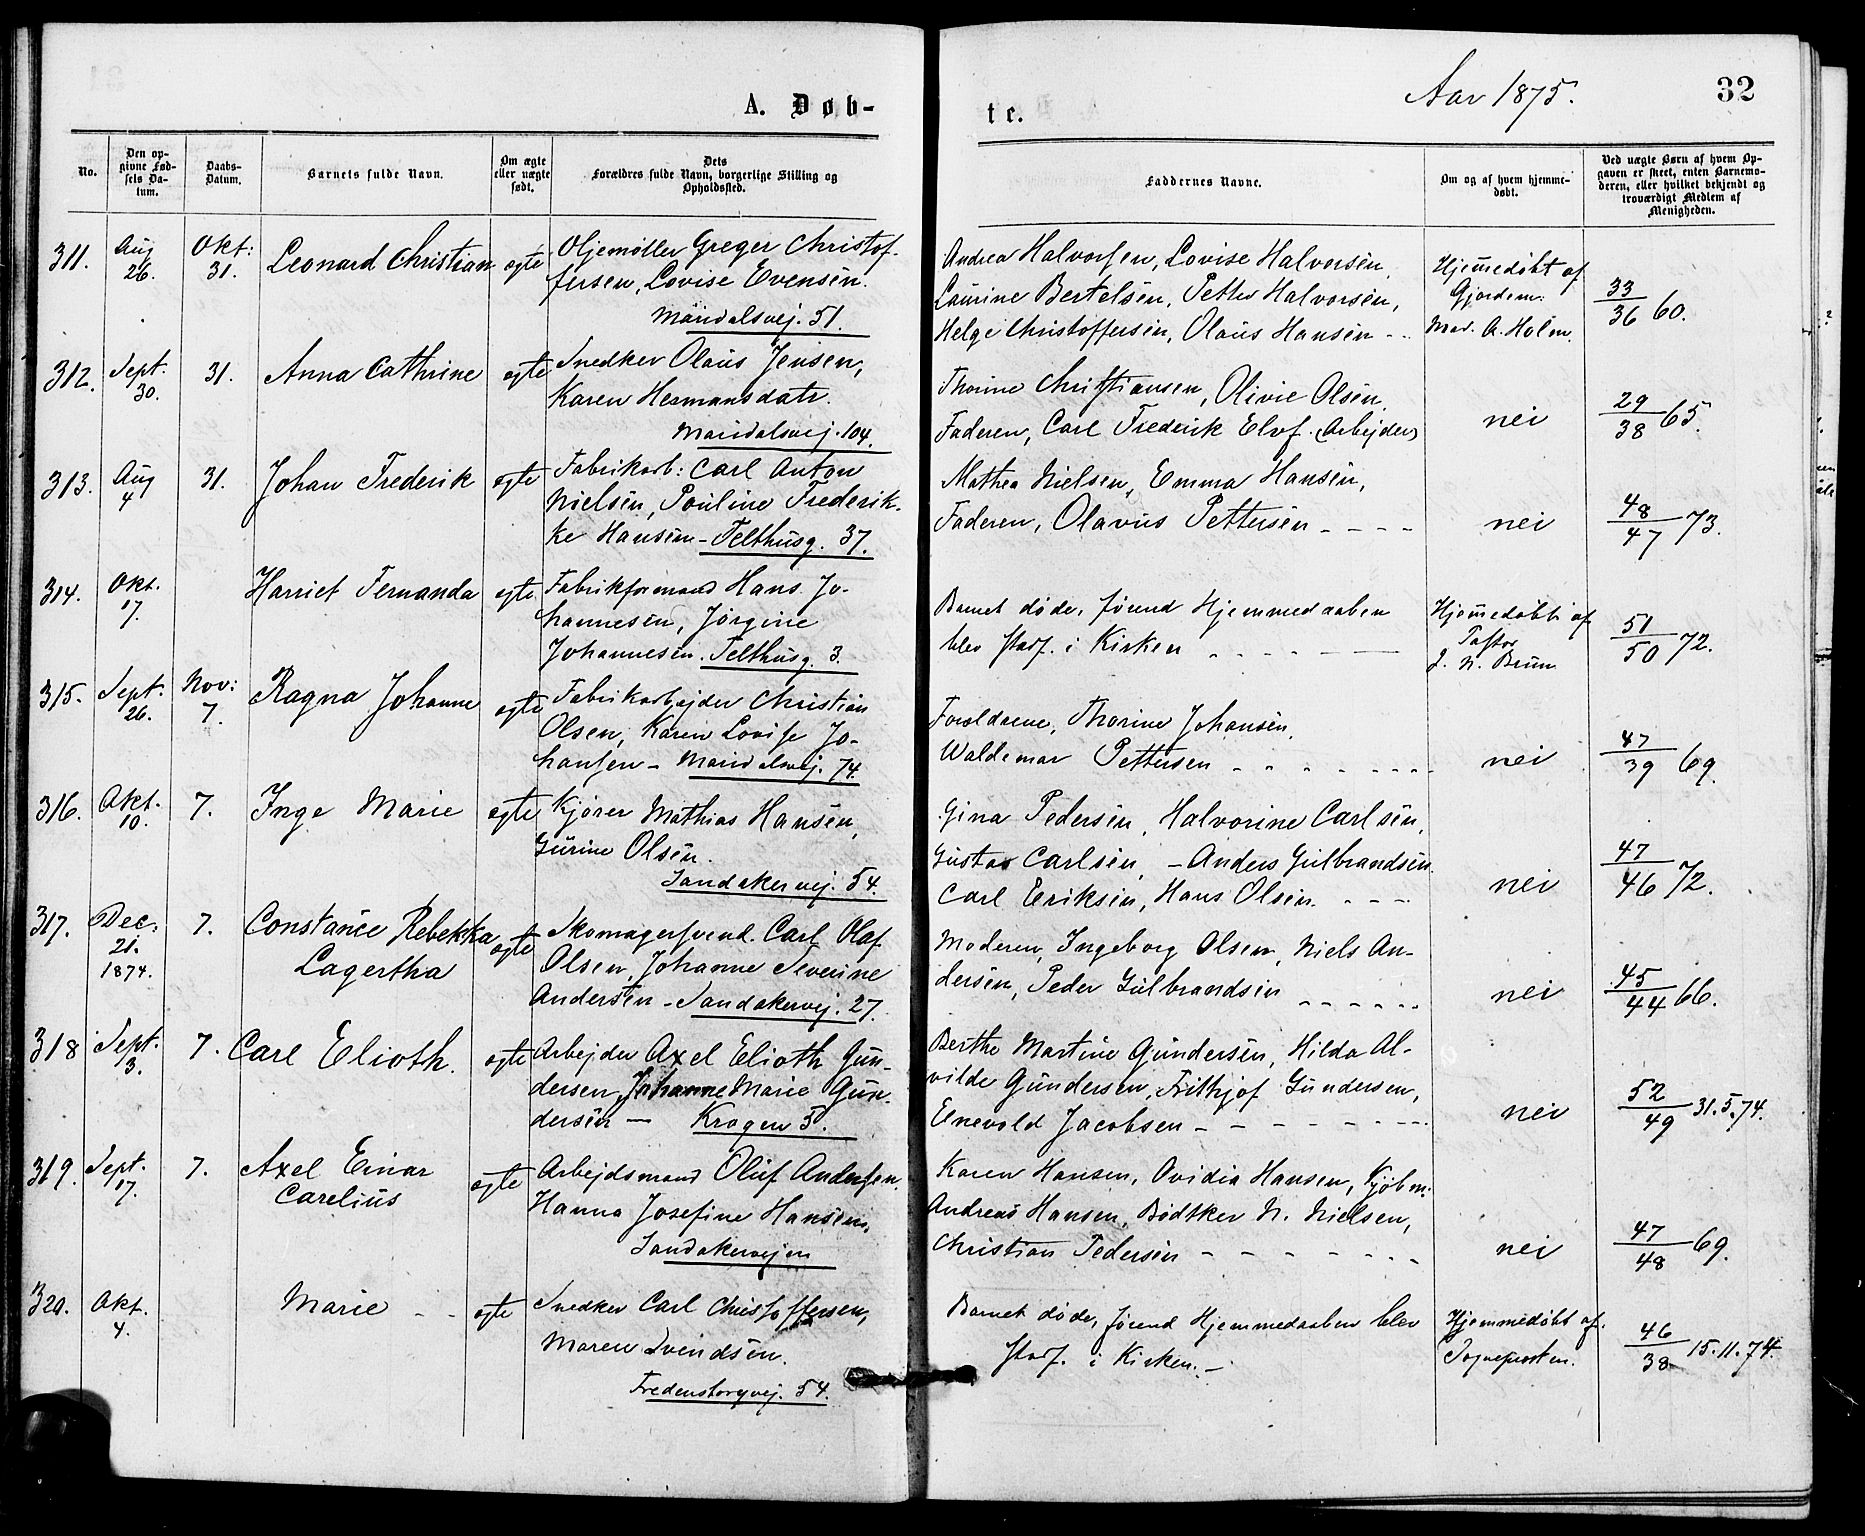 Aar 1875. 32
A. Døb-
te.
No.
Den op-
givne Fød-
sels Da-
tum.
Daabs-
Datum.
Barnets fulde Navn.
Om ægte
eller uægte
født.
Dets
Forældres fulde Navn, borgerlige Stilling og
Opholdssted.
Faddernes Navne.
Om og af hvem hjemme-
døbt.
Ved uægte Børn af hvem Op-
gaven er skeet, enten Barnemo-
deren, eller hvilket bekjendt og
troværdigt Medlem af
Menigheden.
311. Aug 26. Okt: 31. Leonard Christian egte
Oljemøller Greger Christof-
fersen, Lovise Evensen.
Maridalsvej. 51.
Andrea Halvorsen, Lovise Halvorsen,
Laurine Bertelsen, Petter Halvorsen,
Helge Christoffersen, Olaus Hansen - -
Hjemmedøbt af
Gjordem:
Mad. A. Holm.
33/36 60.
312. Sept. 30. 31. Anna Cathrine egte
Snedker Olaus Jensen,
Karen Hermansdatr.
Maridalsvej. 104.
Thorine Christiansen, Olivie Olsen,
Faderen, Carl Frederik Elvf. (Arbejder)
nei
29/38 65.
313. Aug 4 31. Johan Frederik egte
Fabrikarb: Carl Anton
Nielsen, Pauline Frederik-
ke Hansen - Telthusg. 37.
Mathea Nielsen, Emma Hansen,
Faderen, Olavus Pettersen - - - -
nei
48/47 73.
314. Okt. 17. Harriet Fernanda egte
Fabrikformand Hans Jo-
hannesen, Jørgine
Johannesen. Telthusg. 3.
Barnet døde, førend Hjemmedaaben
blev stadf. i Kirken - - - -
Hjemmedøbt af
Pastor
J. N. Bruun
51/50 72.
315. Sept. 26. Nov: 7. Ragna Johanne egte
Fabrikarbejder Christian
Olsen, Karen Lovise Jo-
hansen - Maridalsvej. 74.
Forældrene, Thorine Johansen,
Waldemar Pettersen - - - - - -
nei
47/39 69.
316. Okt. 10. 7. Inga Marie egte
Kjører Mathias Hansen,
Gurine Olsen.
Sandakervej. 54.
Gina Pedersen, Halvorine Carlsen,
Gustav Carlsen, - Anders Gulbrandsen
Carl Eriksen, Hans Olsen. - - -
nei
47/46 72.
317. Dec. 21. 1874. 7. Constance Rebekka
Lagertha egte
Skomagersvend. Carl Olaf
Olsen, Johanne Severine
Andersen - Sandakervej. 27.
Moderen, Ingeborg Olsen, Niels An-
dersen, Peder Gulbrandsen - - - - -
nei
45/44 66.
318 Sept. 3. 7. Carl Elioth. egte
Arbejder Axel Elioth Gun-
dersen, Johanne Marie Gun-
dersen - Krogen 5.
Berthe Martine Gundersen, Hilda Al-
vilde Gundersen, Frithjof Gundersen,
Enevold Jacobsen - - - - - - -
nei
52/49 31.5.74.
319. Sept. 17. 7. Axel Einar
Carelius egte
Arbejdsmand Oluf Andersen.
Hanna Josefine Hansen,
Sandakervejen
Karen Hansen, Ovidia Hansen, Kjøbm.
Andreas Hansen, Bødtker N. Nielsen,
Christian Pedersen - - - - - -
nei
47/48 69.
320. Okt. 4. Marie - - egte
Snedker Carl Christoffersen,
Maren Svendsen.
Fredensborgvej. 54.
Barnet døde, førend Hjemmedaaben blev
stadf. i Kirken. -
Hjemmedøbt af
Sognepresten.
46/38 15.11.74.